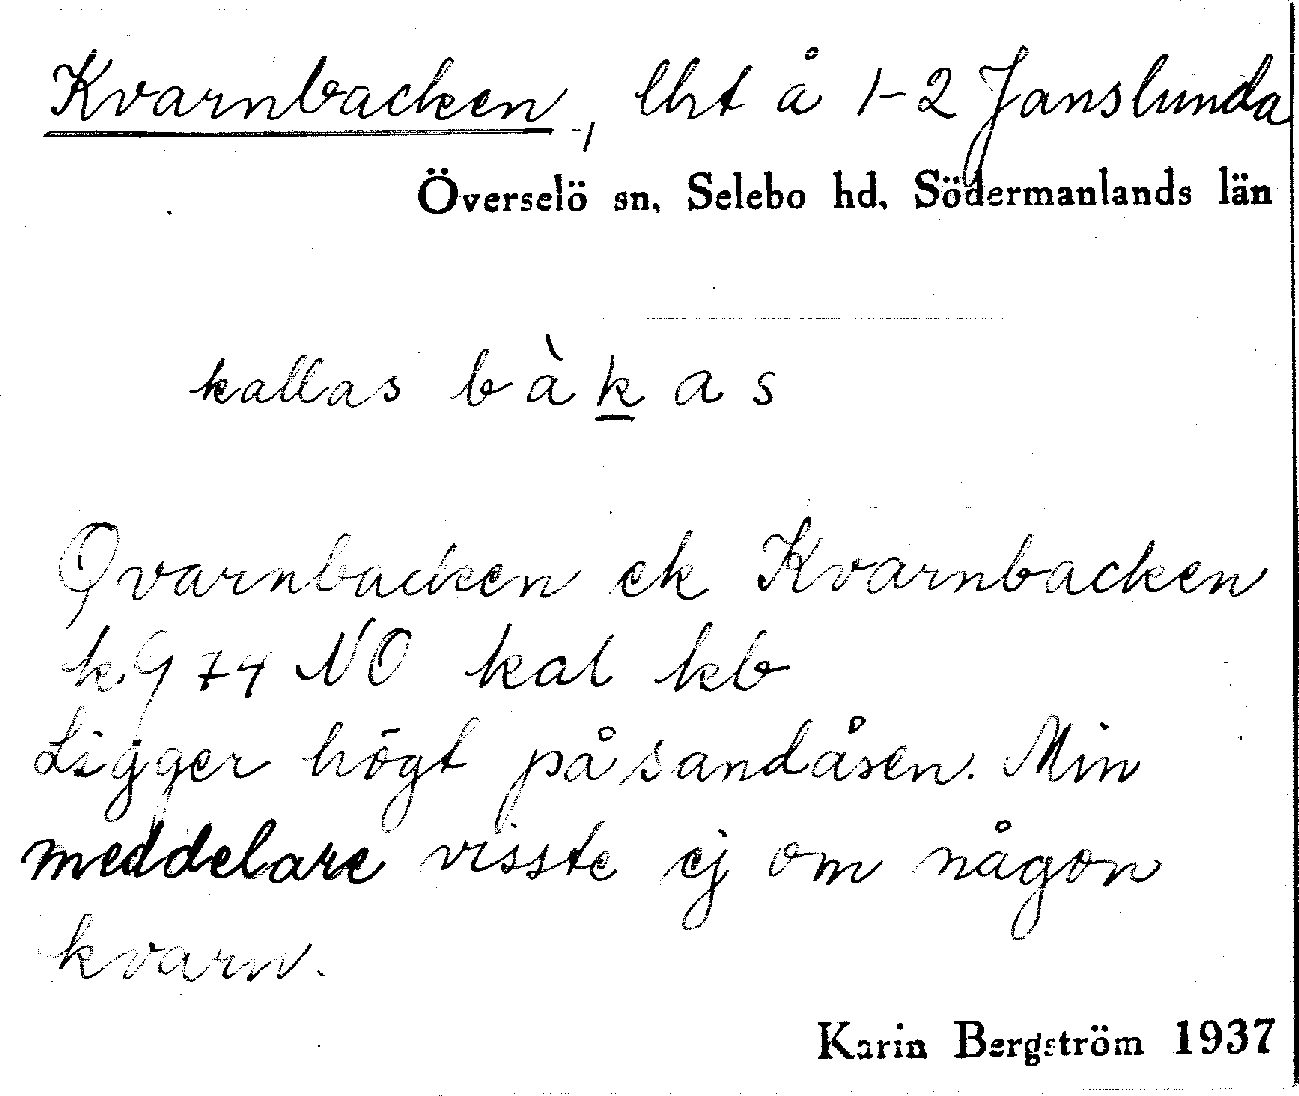 Kvarnbacken, lht å 1-2 Janslunda
Överselö sn, Selebo hd, Södermanlands län
kallas bàkas
Qvarnbacken ek Kvarnbacken
k 974 NO kal kb
Ligger högt på sandåsen. Min
meddelare visste ej om någon
kvarn.
Karin Bergström 1937